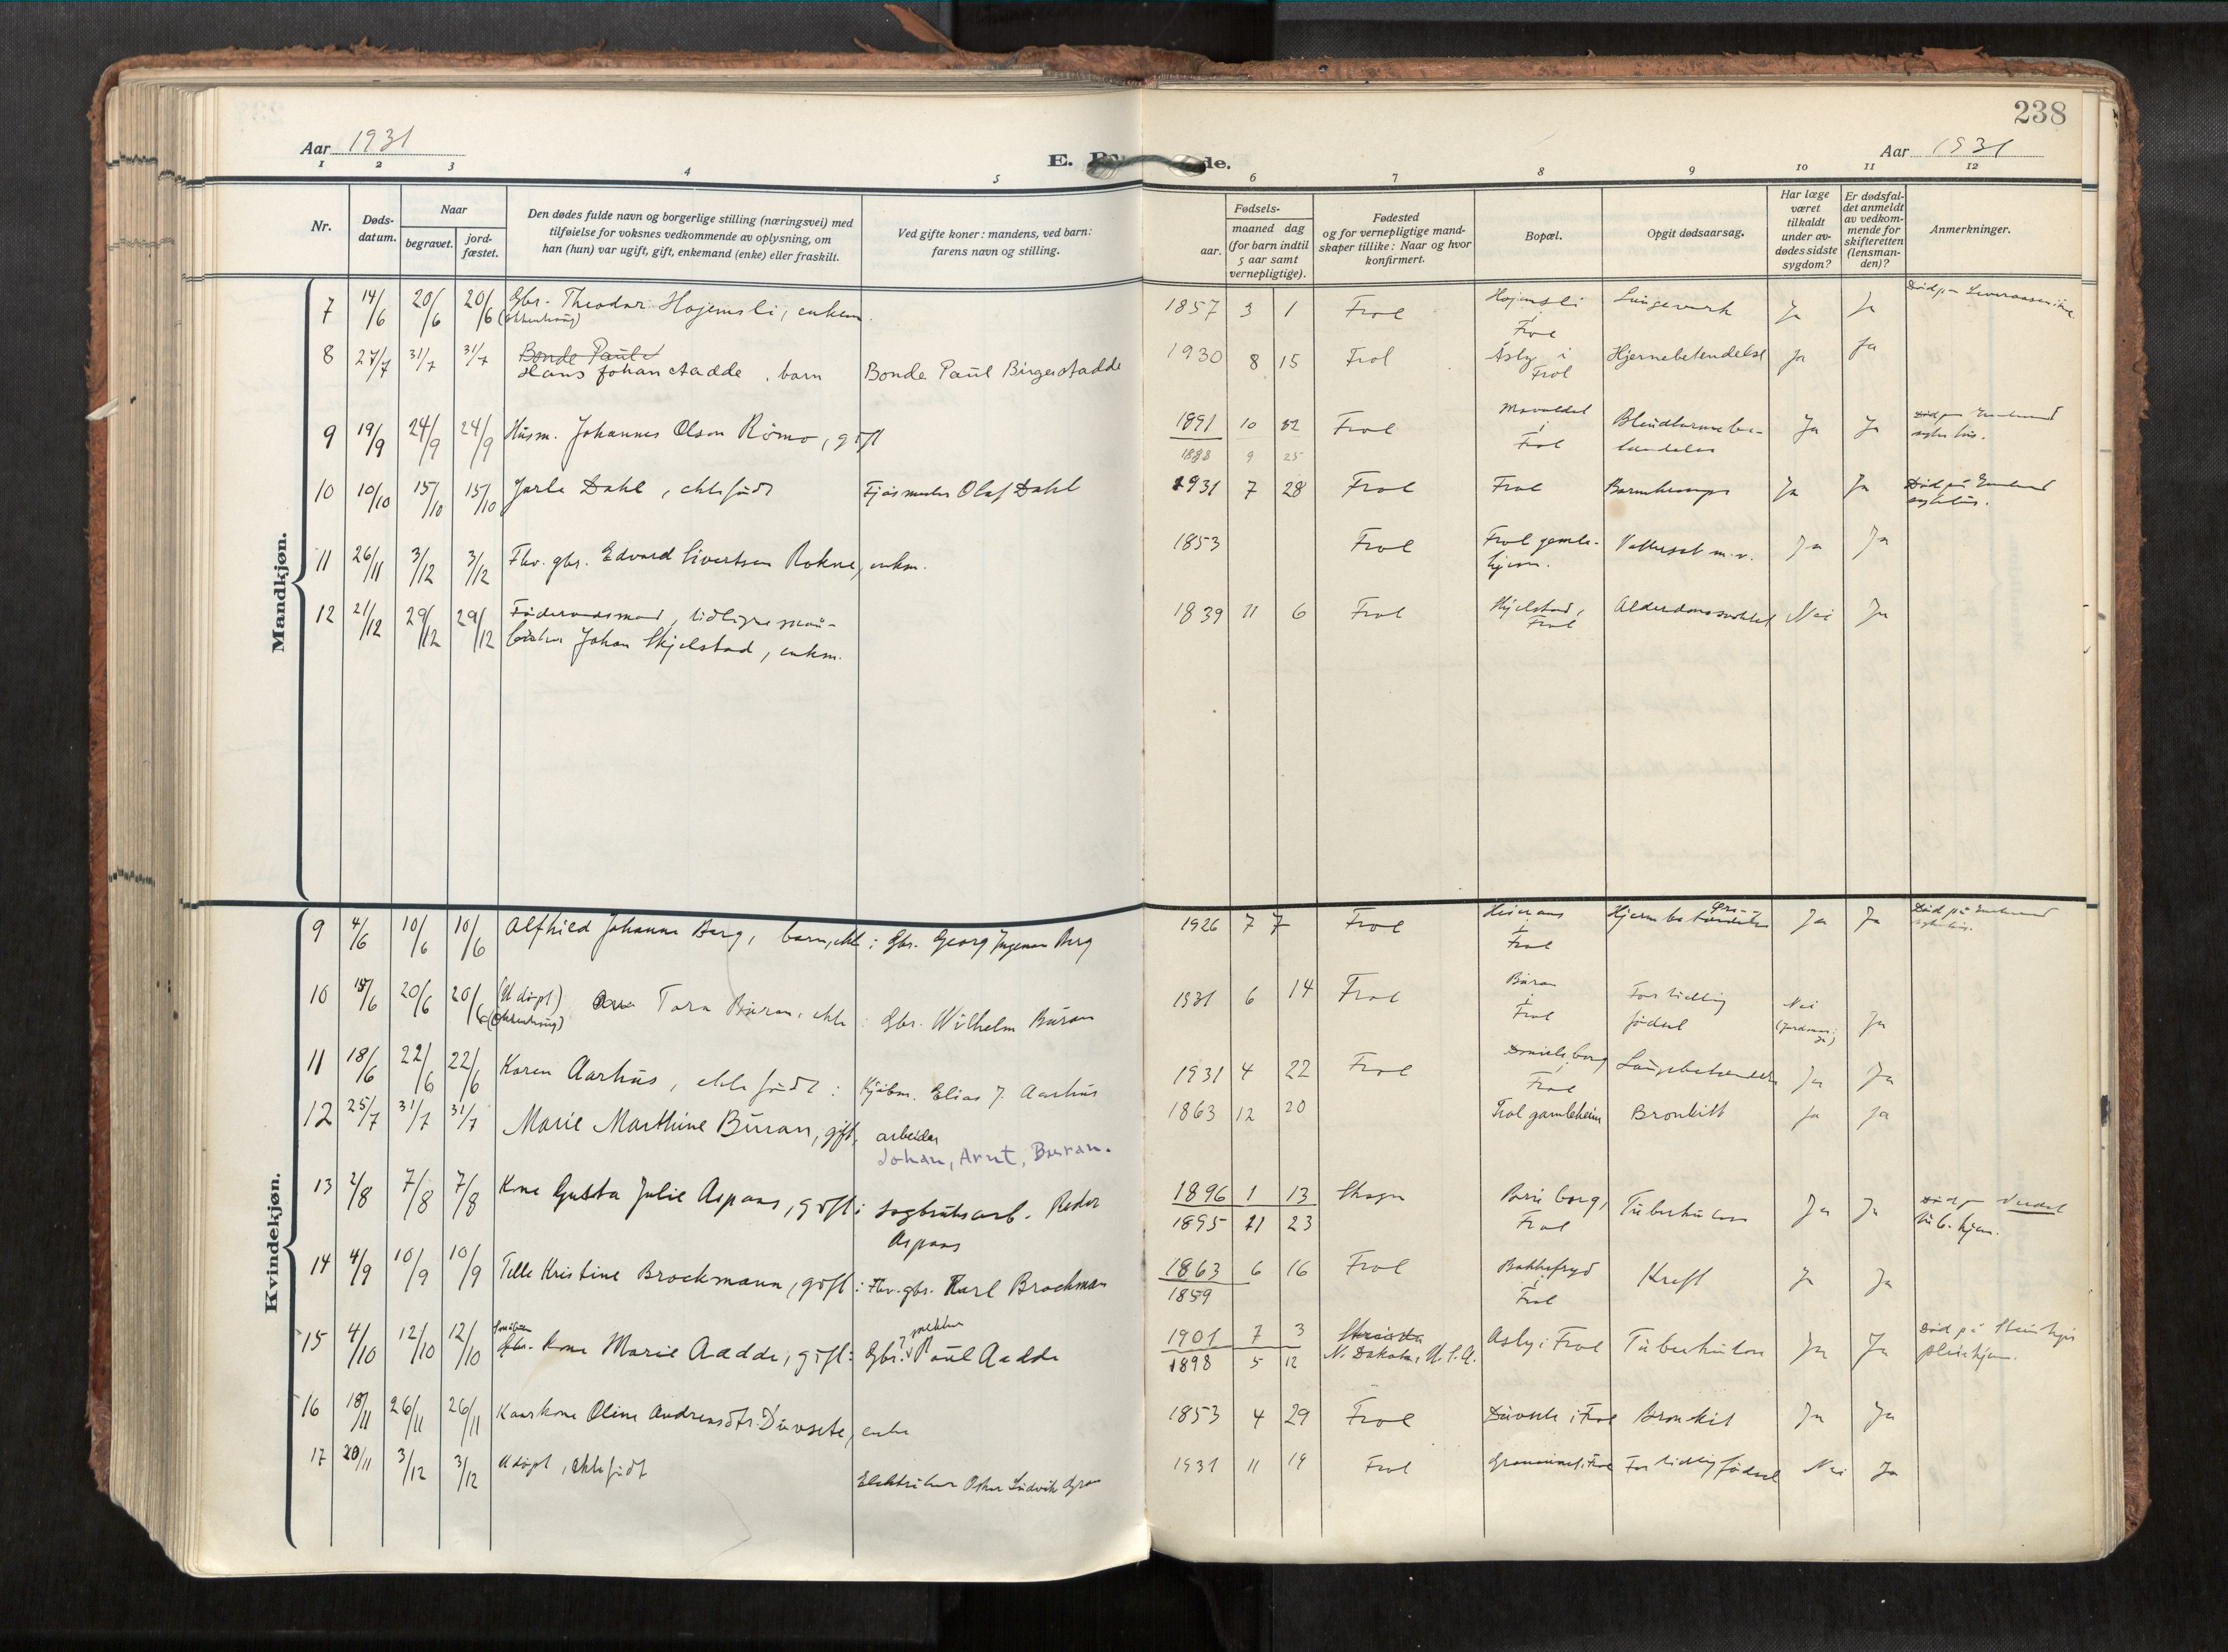 238
Aar 1931
E. de.
Aar 1931
1 2 3 4 5 6 7 8 9 10 11 12
Nr.
Døds-
datum.
Naar
begravet.
jord-
fæstet.
Den dødes fulde navn og borgerlige stilling (næringsvei) med
tilføielse for voksnes vedkommende av oplysning, om
han (hun) var ugift, gift, enkemand (enke) eller fraskilt.
Ved gifte koner: mandens, ved barn:
farens navn og stilling.
Fødsels-
aar.
maaned dag
(for barn indtil
5 aar samt
vernepligtige).
Fødested
og for vernepligtige mand-
skaper tillike: Naar og hvor
konfirmert.
Bopæl.
Opgit dødsaarsag.
Har læge
været
tilkaldt
under av-
dødes sidste
sygdom?
Er dødsfal-
det anmeldt
av vedkom-
mende for
skifteretten
(lensman-
den)?
Anmerkninger.
Mandkjøn.
7 14/6 20/6 20/6 Gbr. Theodor Hojemsli, enkem. 1857 3 1 Frol Hojemsli i Frol Ja Ja
8 27/7 31/7 31/7 Bonde Paul
Hans Johan Aadde, barn Bonde Paul Birger Aadde 1930 8 15 Frol Åsby i Frol Hjernebetendelse Ja Ja
9 19/9 24/9 24/9 Husm. Johannes Olson Römo, gift 1891 10 Frol i Frol Ja Ja
1888 9 25 sykehus.
10 10/10 15/10 15/10 Jarle Dahl, ektefødt Olaf Dahl 1931 7 28 Frol Frol Barnekrampe Ja Ja Død på sykehus.
11 26/11 3/12 3/12 Fhv. gbr. Edvard Sivertsen Rokne, enkm. 1853 Frol Frol gamle-
hjem. Vattersot m.v. Ja Ja
12 21/12 29/12 29/12 Föderaadsmand, tidligere
Johan Skjelstad, enkm. 1839 11 6 Frol Skjelstad, Frol Alderdomssvakhet Nei Ja
Kvindekjøn.
9 4/6 10/6 10/6 Alfhild Johanne Berg, barn, ekte : Gbr. Georg Ingeman Berg 1926 7 7 Frol i Frol Ja Ja Død på sykehus.
10 15/6 20/6 20/6 (Udöpt) Tora Buran, ekte : Gbr. Wilhelm Buran 1931 6 14 Frol Buran i Frol For tidlig
födsel Nei Ja
11 18/6 22/6 22/6 Karen Aarhus, ekte födt : Kjöbm. Elias J. Aarhus 1931 4 22 Frol Danielsborg, Frol Lungebetendelse Ja Ja
12 25/7 31/7 31/7 Marie Marthine Buran, gift, arbeider
Johan, Arnt, Buran. 1863 12 20 Frol gamleheim Bronkitt Ja Ja
13 2/8 7/8 7/8 Kone Gusta Julie Aspaas, gift : Sagbruksarb. Peder
Aspaas 1896 1 13 Skogn Frol Tuberkulose Ja Ja Verdal
1895 11 23 tub. hjem.
14 4/9 10/9 10/9 Tille Kristine Brockmann, gift : Fhv. gbr. Karl Brockman 1863 6 16 Frol Bakkefryd i Frol Kreft Ja Ja
1859
15 4/10 12/10 12/10 Gbr. Kone Marie Aadde, gift : Gbr. Paul Aadde 1901 7 3
1898 5 12 N. Dakota, U.S.A. Åsby i Frol Tuberkulose Ja Ja Död på Steinkjer
pleiehjem.
16 18/11 26/11 26/11 Kaarkone Oline Andreasdtr. Duvsete, enke 1853 4 29 Frol Duvsete i Frol Bronkit Ja Ja
17 20/11 3/12 3/12 Udöpt, ektefödt Elektriker Oskar Ludvik Gran 1931 11 19 Frol For tidlig födsel Nei Ja